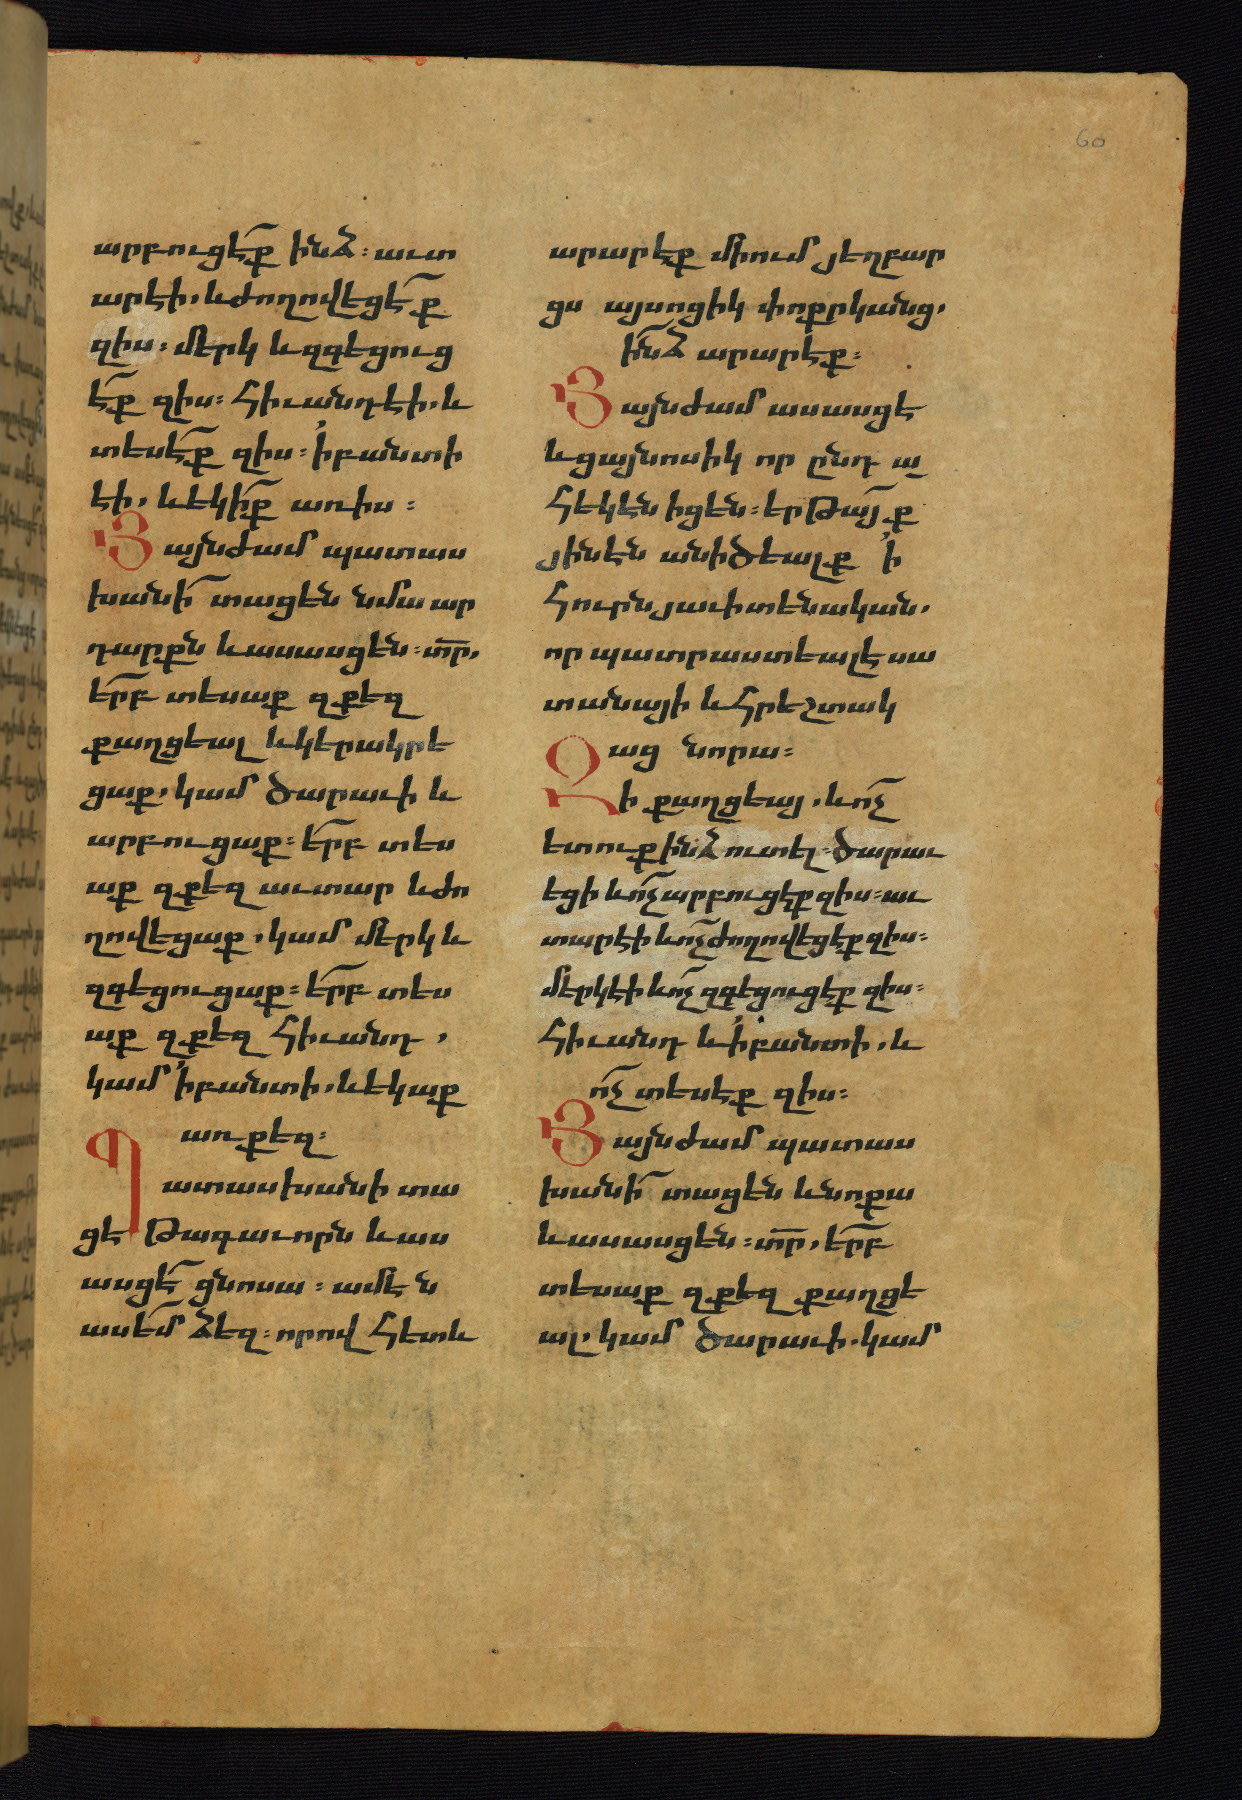 60
արբուցէք ինձ։ աւտ
արէի, և ժողովեցէք
զիս։ մերկ և զգեցուց
էք զիս։ հիւանդ էի, և
տեսէք զիս։ ի բանտի
էի, և եկիք առ իս։
Յայնժամ պատաս
խանի տացեն նմա ար
դարքն և ասասցեն։ տր,
երբ տեսաք զքեզ
քաղցեալ և կերակրե
ցաք, կամ ծարաւի և
արբուցաք։ երբ տես
աք զքեզ աւտար և ժո
ղովեցաք, կամ մերկ և
զգեցուցաք։ երբ տես
աք զքեզ հիւանդ,
կամ ի բանտի, և եկաք
առ քեզ։
Պատասխանի տա
ցէ թագաւորն և աս
ասցէ ցնոսա։ ամեն
ասեմ ձեզ։ որովհետև
արարէք միում յեղբար
ցս այսոցիկ փոքրկանց,
ինձ արարէք։
Յայնժամ ասասցէ
և ցայնոսիկ որ ընդ ա
հեկեն իցեն։ երթայք
յինէն անիծեալք ի
հուրն յաւիտենական,
որ պատրաստեալ է սա
տանայի և հրեշտակ
աց նորա։
Զի քաղցեայ, և ոչ
ետուք ինձ ուտել։ ծարաւ
եցի և ոչ արբուցէք զիս։ աւ
տար էի և ոչ ժողովեցէք զիս։
մերկ էի և ոչ զգեցուցէք զիս։
հիւանդ և ի բանտի, և
ոչ տեսէք զիս։
Յայնժամ պատաս
խանի տացեն և նոքա
և ասասցեն։ տր, երբ
տեսաք զքեզ քաղցե
ալ, կամ ծարաւի, կամ